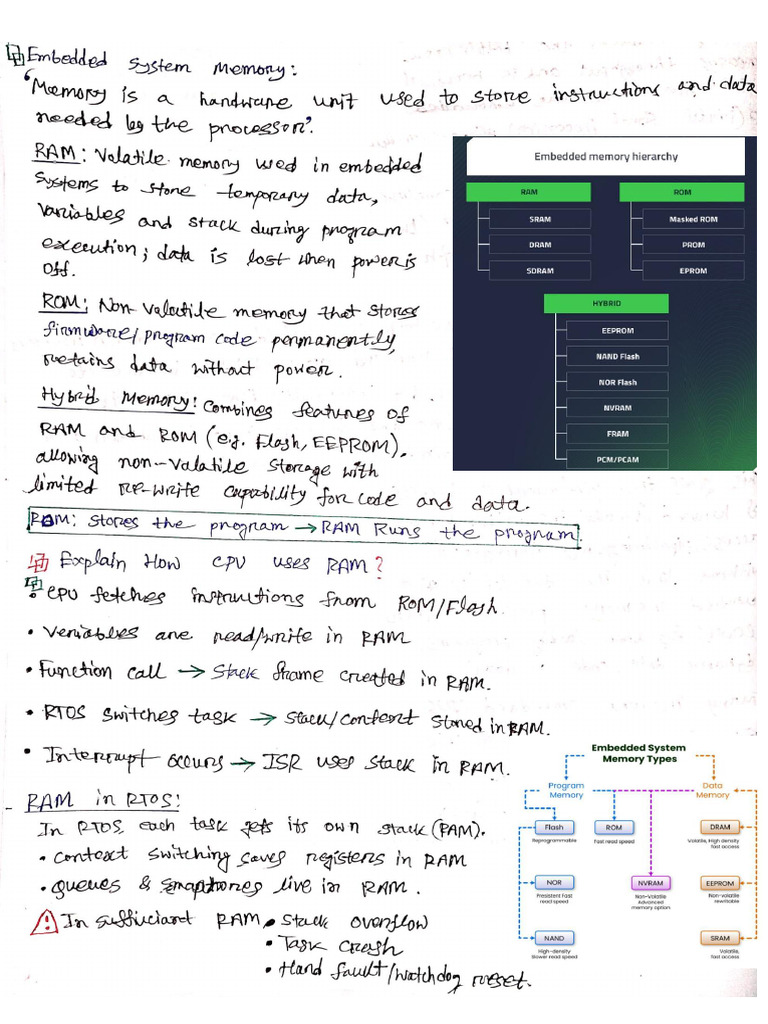 Embedded System Memory:
"Memory is a hardware unit used to store instructions and data
needed by the processor".
RAM: Volatile memory used in embedded
systems to store temporary data,
variables and stack during program
execution; data is lost when power is
off.
ROM: Non-Volatile memory that stores
firmware/program code permanently,
retains data without power.
Hybrid Memory: Combines features of
RAM and ROM (e.g. Flash, EEPROM),
allowing non-volatile storage with
limited re-write capability for code and data.
ROM: Stores the program → RAM Runs the program
Embedded memory hierarchy
RAM
SRAM
DRAM
SDRAM
ROM
Masked ROM
PROM
EPROM
HYBRID
EEPROM
NAND Flash
NOR Flash
NVRAM
FRAM
PCM/PCAM
Explain How CPU uses RAM?
• CPU fetches instructions from ROM/Flash.
• Veriables are read/write in RAM
• Function call → Stack frame created in RAM.
• RTOS switches task → Stack/context stored in RAM.
• Interrupt occurs → ISR uses stack in RAM.
- RAM in RTOS:
In RTOS, each task gets its own stack (RAM).
• Context switching saves registers in RAM
• Queues & live in RAM.
In sufficiant RAM • Stack overflow
• Task crash
• Hard fault/watchdog reset.
Embedded System
Memory Types
Program
Memory
Data
Memory
Flash
Reprogrammable
ROM
Fast read speed
DRAM
Volatile, High density
fast access
NOR
Presistent Fast
read speed
NVRAM
Non-Volatile
Advanced
memory option
EEPROM
Non-volatile
rewritable
NAND
High-density
Slower read speed
SRAM
Volatile,
fast access